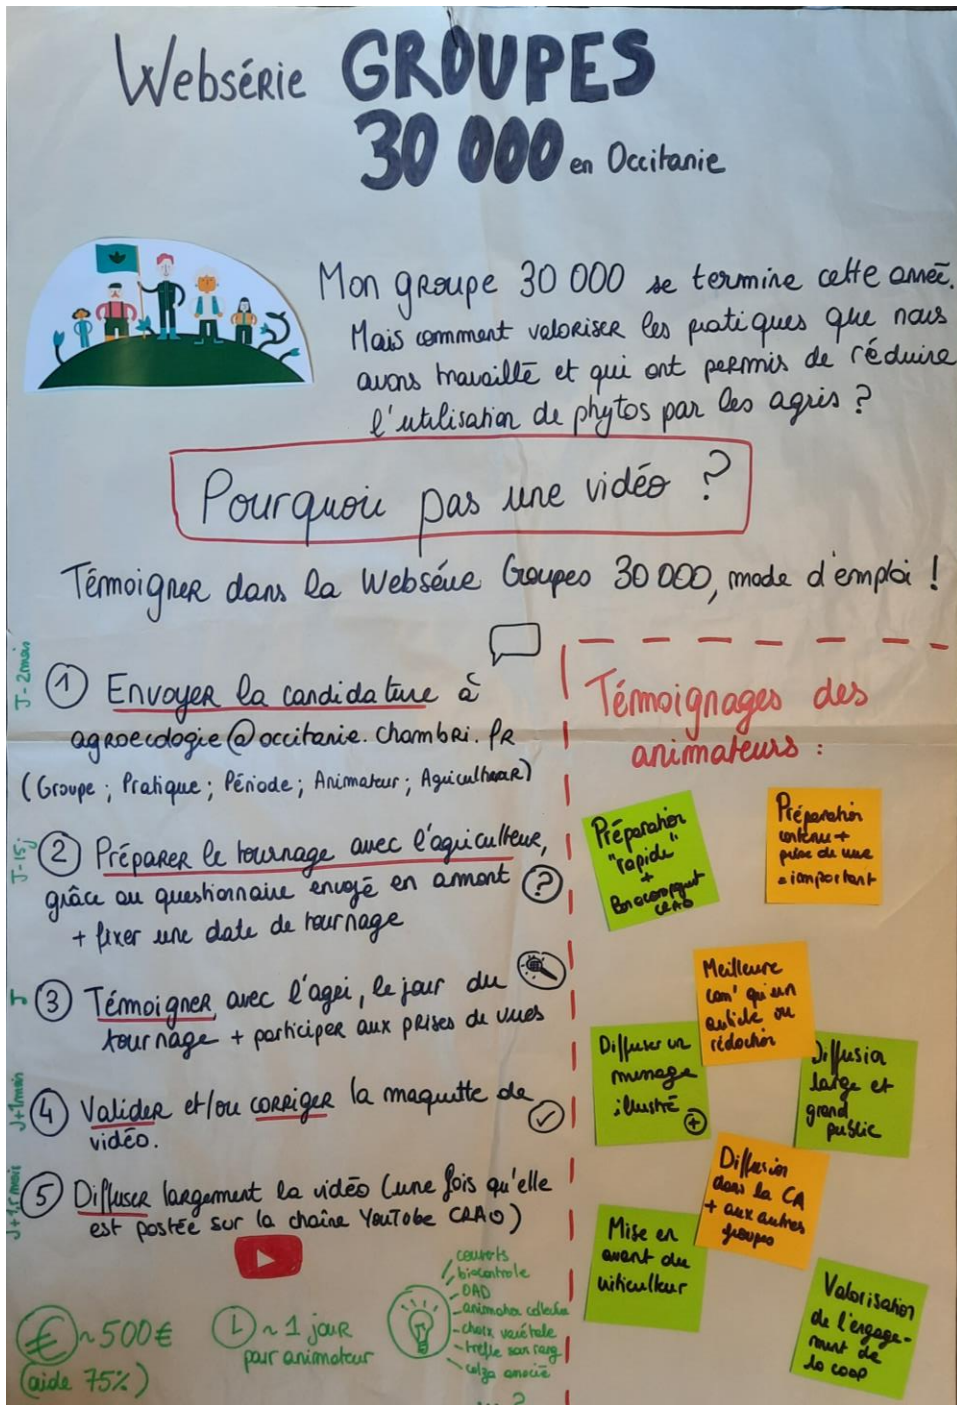 Websérie GROUPES
30 000 en Occitanie
Mon groupe 30 000 se termine cette année.
Mais comment valoriser les pratiques que nous
avons travaillé et qui ont permis de réduire
l'utilisation de phytos par les agris ?
Pourquoi pas une vidéo ?
Témoigner dans la Websérie Groupes 30 000, mode d'emploi !
J-2mois
1 Envoyer la candidature à
agroecologie@occitanie.chambri.fr
(Groupe ; Pratique ; Période ; Animateur ; Agriculteur)
J-15j
2 Préparer le tournage avec l'agriculteur,
grâce au questionnaire envoyé en amont ?
+ fixer une date de tournage
J
3 Témoigner avec l'agri, le jour du
tournage + participer aux prises de vues
J+1mois
4 Valider et/ou corriger la maquette de
vidéo.
J+1,5 mois
5 Diffuser largement la vidéo (une fois qu'elle
est postée sur la chaîne YouTube CRAO)
€ ~500€
(aide 75%)
~ 1 jour
par animateur
couverts
biocontrole
OAD
animation collective
choix variétale
trefle sans rang
colza associé
Témoignages des
animateurs :
Préparation
"rapide"
+
CRAO
Préparation
contenu +
prise de vue
= important
Meilleure
com' qu'un
article ou
rédaction
Diffuser un
message
illustré +
Diffusion
large et
grand
public
Diffusion
dans la CA
+ aux autres
groupes
Mise en
avant du
viticulteur
Valorisation
de l'engage-
ment de
la coop